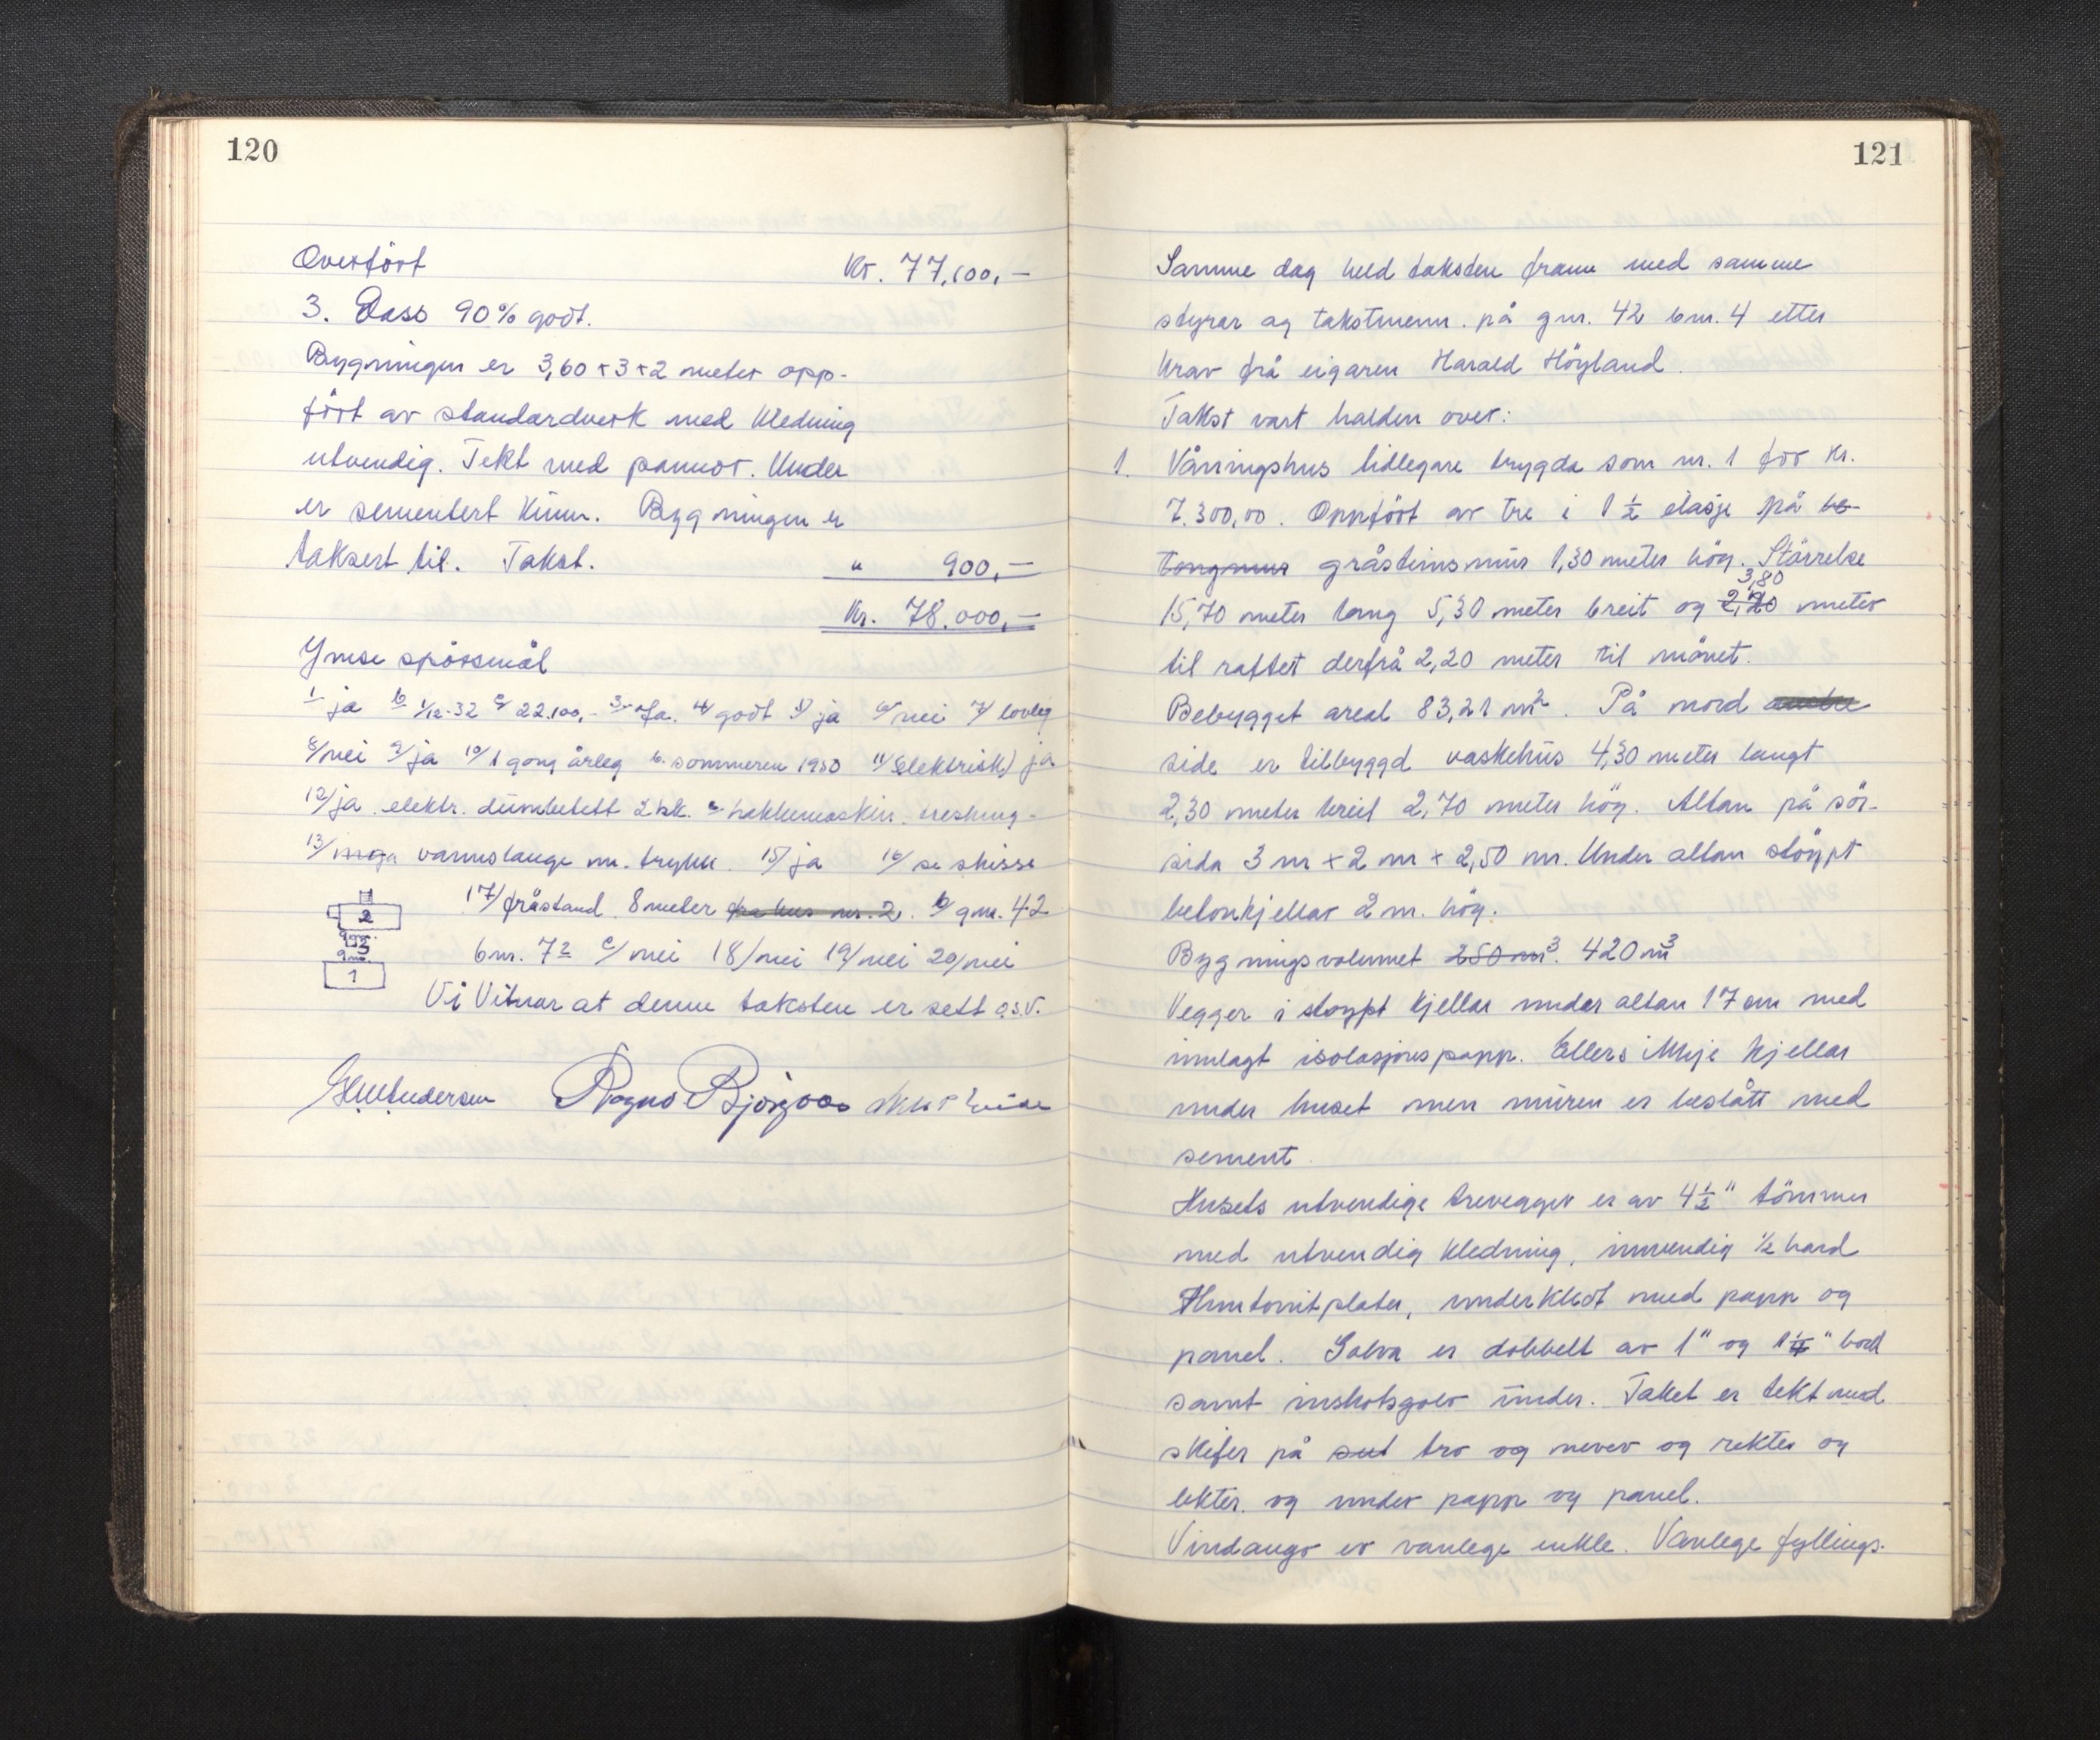 120
Overfört Kr. 77,100,-
3. Dass 90% godt.
Bygningen er 3,60 x 3 x 2 meter opp-
fört av standardverk med kledning
utvendig. Tekt med pannor. Under
er sementert kum. Bygningen er
taksert til. Takst. " 900,-
Kr. 78.000,-
Ymse spörsmål
1 ja b 1/12-32 c 22.100,- 3 Ja. 4/ godt 5/ ja 6/ nei 7/ lovleg
8/ nei 9/ ja 10/ 1 gong årleg b. sommeren 1950 11/ (elektrisk) ja
12/ ja. elektr. 2 hk. hakkemaskin
13/ vannslange m. trykk. 15/ ja 16/ se skisse
17/ fråstand 8 meter fra hus nr. 2. b/ gnr. 42
bnr. 72 c/ nei 18/ nei 19/ nei 20/ nei
2
3
1
Vi Vitnar at denne taksten er sett o.s.v.
Andersen Magne Bjørgo
121
Samme dag held taksten fram med samme
styrar og takstmenn. på gnr. 42 bnr. 4 etter
krav frå eigaren Harald Höyland.
Takst vart halden over:
1. Våningshus tidlegare trygda som nr. 1 for kr.
7.300,00. Oppfört av tre i 1 1/2 etasje på be-
tongmur gråsteinsmur 1,30 meter hög. Störrelse
3,80
15,70 meter lang 5,30 meter breit og 2,20 meter
til raftet derfrå 2,20 meter til mönet.
Bebygget areal 83,21 m². På nord
side er tilbyggd vaskehus 4,30 meter langt
2,30 meter breit 2,70 meter hög. Altan på sör-
sida 3 m x 2 m x 2,50 m. Under altan stöypt
betonkjellar 2 m. hög.
Bygningsvolumet 250 m³. 420 m³
Vegger i stoypt kjellar under altan 17 cm med
innlagt isolasjonspapp. Ellers ikkje kjellar
under huset men muren er beslått med
sement.
Husets utvendige trevegger er av 4 1/2" tömmer
med utvendig kledning, innvendig 1/2 hard
Huntonitplater, underkledt med papp og
panel. Golva er dobbelt av 1" og 1 1/4" bord
samt innskotsgolv under. Taket er tekt med
skifer på sut tro og never og rekter og
lekter. og under papp og panel.
Vindaugo er vanlege enkle. Vanlege fyllings-